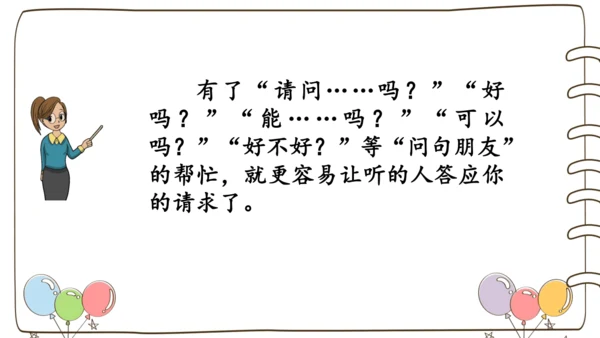 有了“请问……吗？”“好
吗？”“能……吗？”“可以
吗？”“好不好？”等“问句朋友”
的帮忙，就更容易让听的人答应你
的请求了。